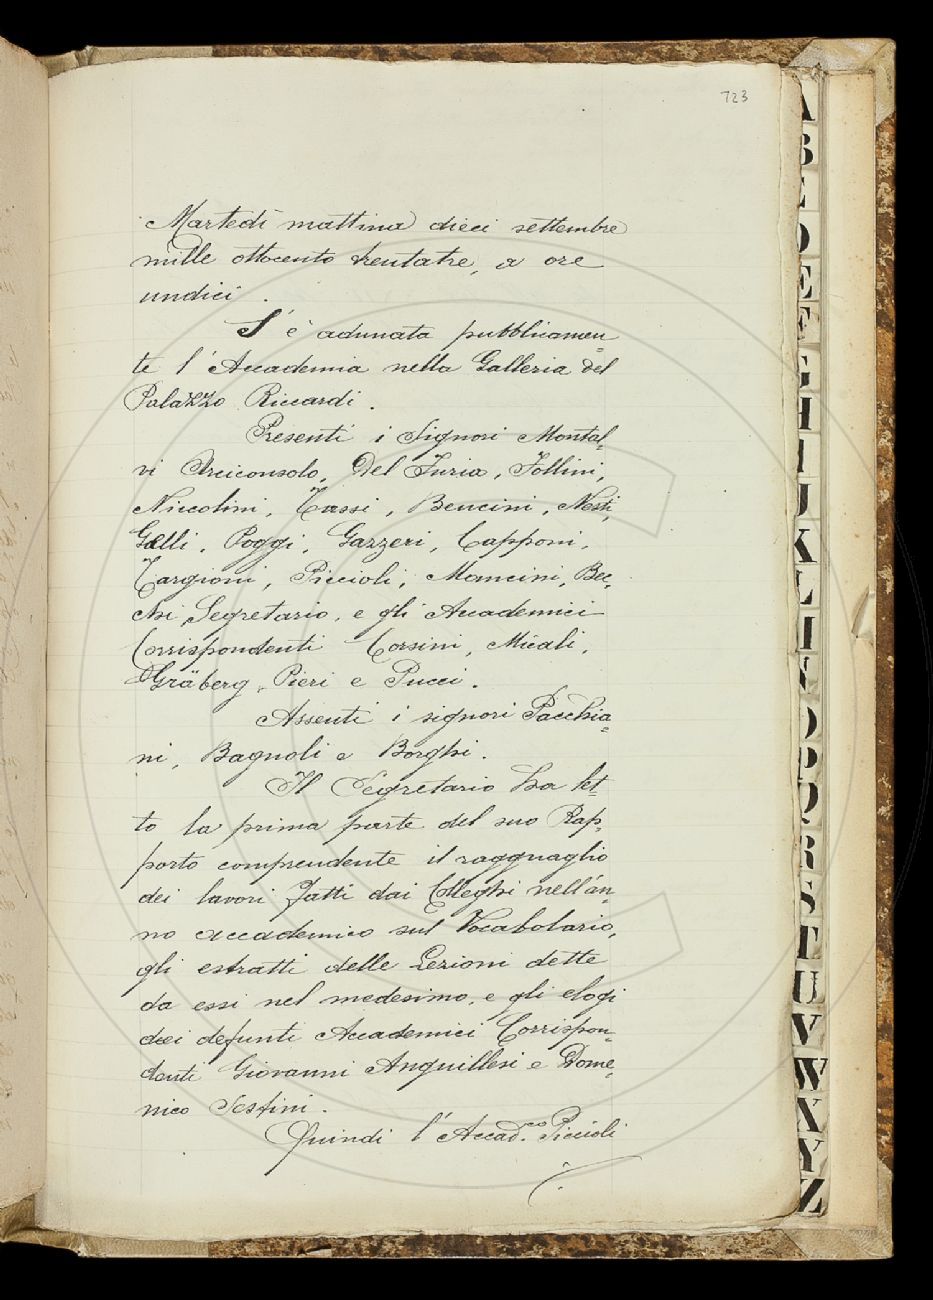 723
Martedì mattina dieci settembre
mille ottocento trentatre, a ore
undici.
S'è adunata pubblicamen=
te l'Accademia nella Galleria del
Palazzo Riccardi.
Presenti i Signori Montal=
vi Arciconsolo, Del Furia, Follini,
Niccolini, Tassi, Bencini, Nesti,
Gelli, Poggi, Gazzeri, Capponi,
Targioni, Piccioli, Mancini, Bec=
chi Segretario, e gli Accademici
Corrispondenti Corsini, Micali,
Gräberg, Pieri e Pucci.
Assenti i signori Pacchia=
ni, Bagnoli e Borghi.
Il Segretario ha let=
to la prima parte del suo Rap=
porto comprendente il ragguaglio
dei lavori fatti dai Colleghi nell'an=
no accademico sul Vocabolario,
gli estratti delle Lezioni dette
da essi nel medesimo, e gli elogi
dei defunti Accademici Corrispon=
denti Giovanni Anguillesi e Dome=
nico Sestini.
Quindi l'Accad.co Piccioli
A
B
D
E
F
G
H
I
J
K
L
O
P
Q
R
S
T
U
V
W
X
Y
Z